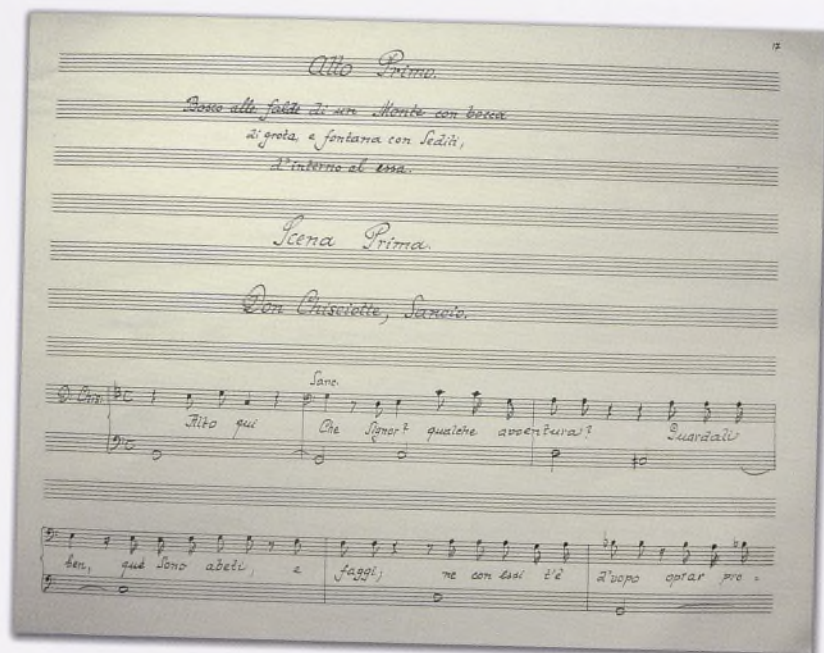 17
Atto Primo.
Bosco alle falde di un Monte con bocca
di grota, e fontana con Sedili,
d'interno ad essa.
Scena Prima.
Don Chisciotte, Sancio.
Sanc.
D. Chis: Alto qui Che Signor? qualche avventura? Guardali
ben, que Sono abeti, e faggi; ne con essi t'è d'uopo oprar pro=